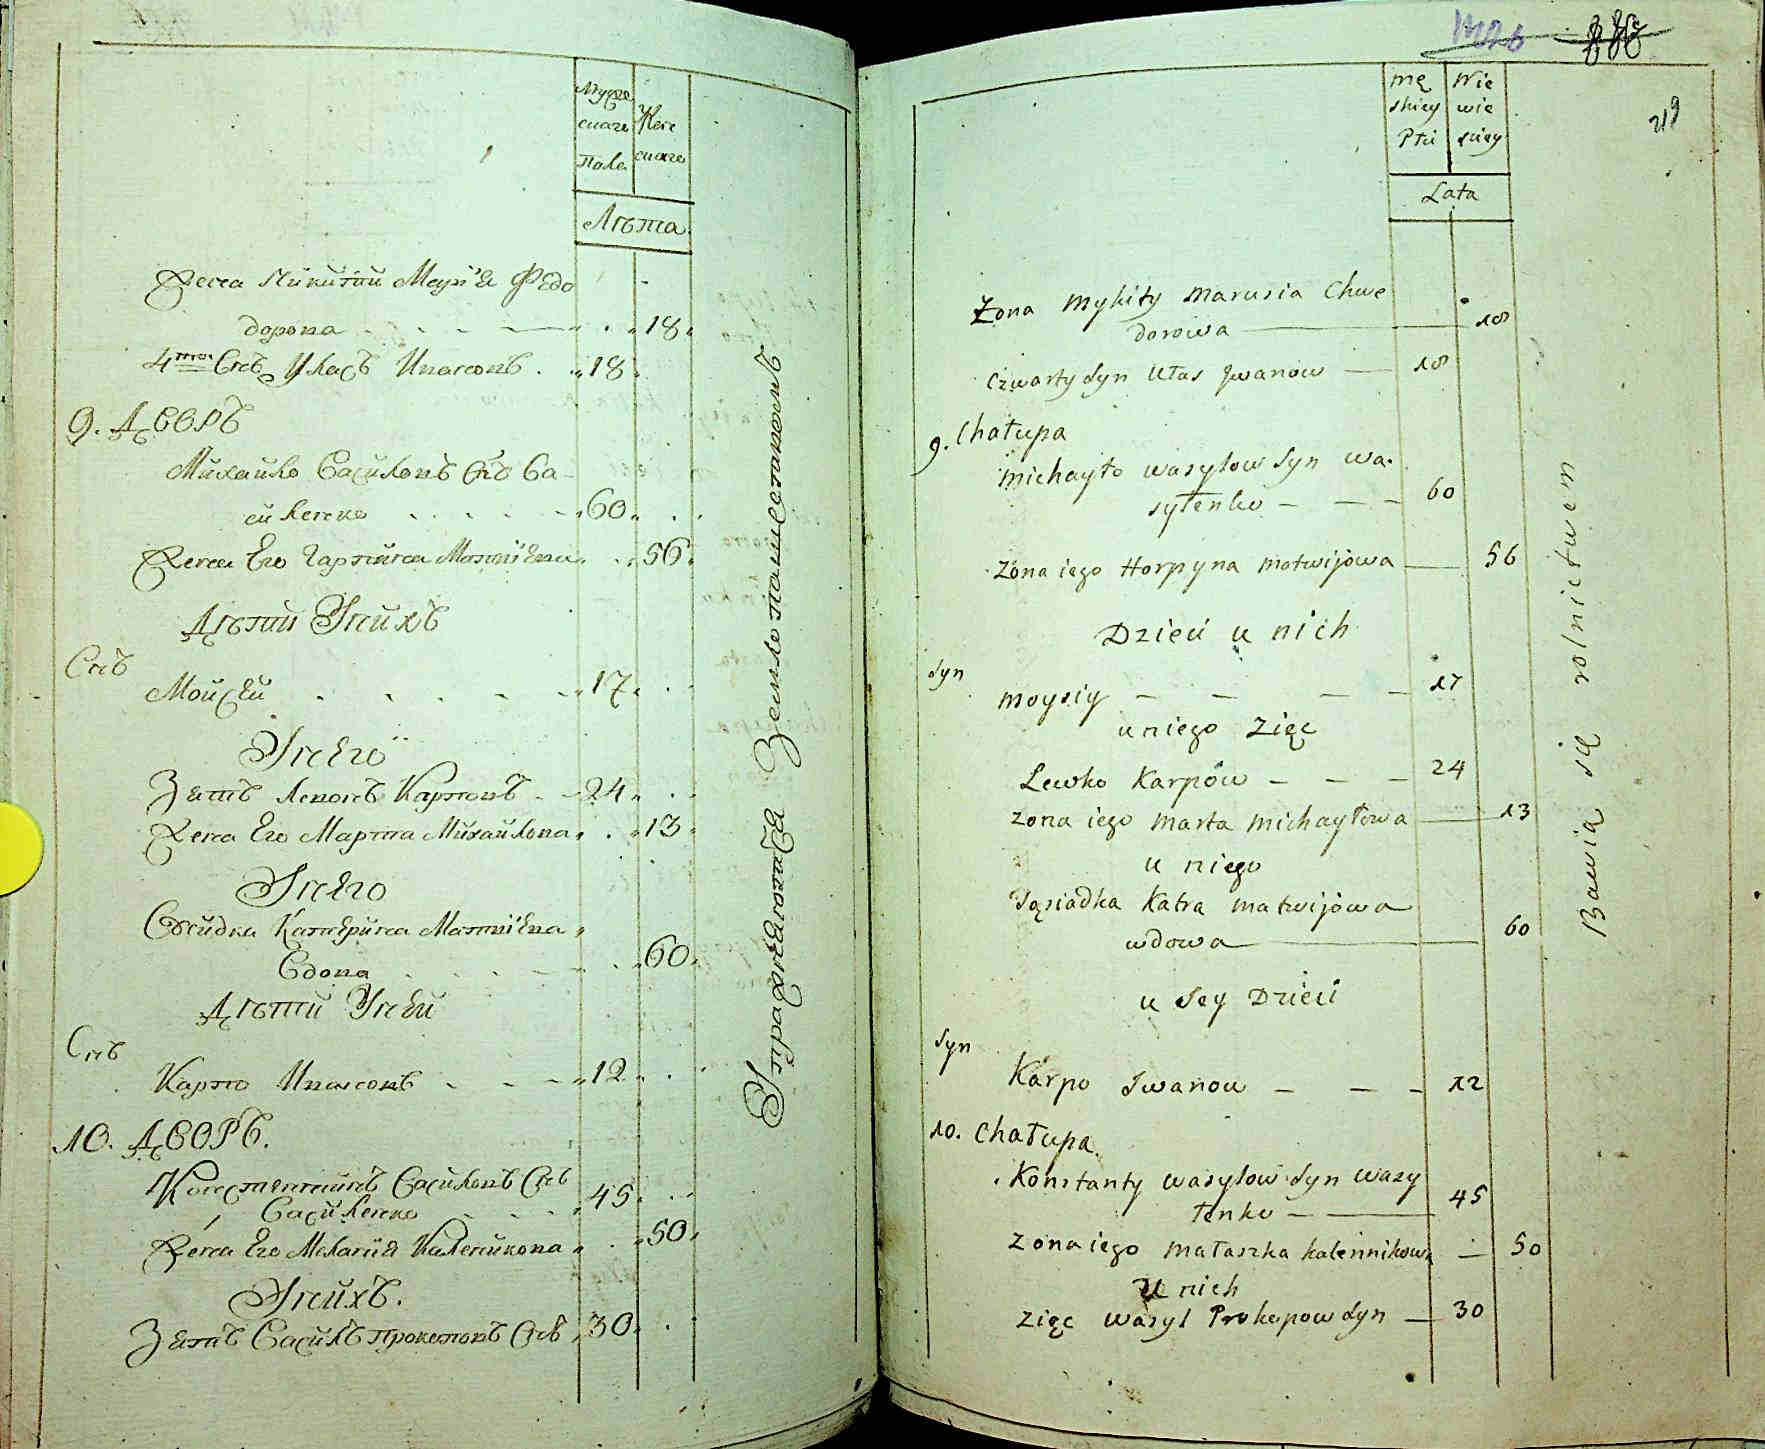 Мужеска Женска
Пола
Лѣта
Жена Никити Марія Федо
дорова 18
4й Снъ Уласъ Ивановъ 18
9. Дворъ
Михайло Василовъ Снъ Ва
силенко 60
Жена Его Гарпина Матвіева 56
Дѣти Унихъ
Снъ
Мойсей 17
Унего
Зять Левонъ Карповъ 24
Жена Его Марта Михайлова 13
Унего
Сусидка Катерина Матвіева
Вдова 60
Дѣти Уней
Снъ
Карпо Ивановъ 12
10. Дворъ.
Константинъ Василовъ Снъ
Василенко 45
Жена Его Меланія Каленикова 50
Унихъ.
Зять Василъ Прокоповъ Снъ 30
Упражняются Землепашествомъ
219
Mę Nie
skiey wie
Płci skiey
Lata
Żona Mykity Marusia Chwe
dorowa 18
Czwarty Syn Ułas Iwanow 18
9. Chałupa
Michayło Wasylow Syn Wa
sylenko 60
Żona iego Horpyna Matwijowa 56
Dzieci u nich
Syn
Moysiy 17
u niego Zięć
Lewko Karpów 24
Żona iego Marta Michayłowa 13
u niego
Sąsiadka Katra Matwijowa
wdowa 60
u Jey Dzieci
Syn
Karpo Iwanow 12
10. Chałupa
Konstanty Wasylow Syn Wasy
lenko 45
Żona iego Małaszka Kalennikowa 50
U nich
Zięć Wasyl Prokopow Syn 30
Bawią się rolnictwem